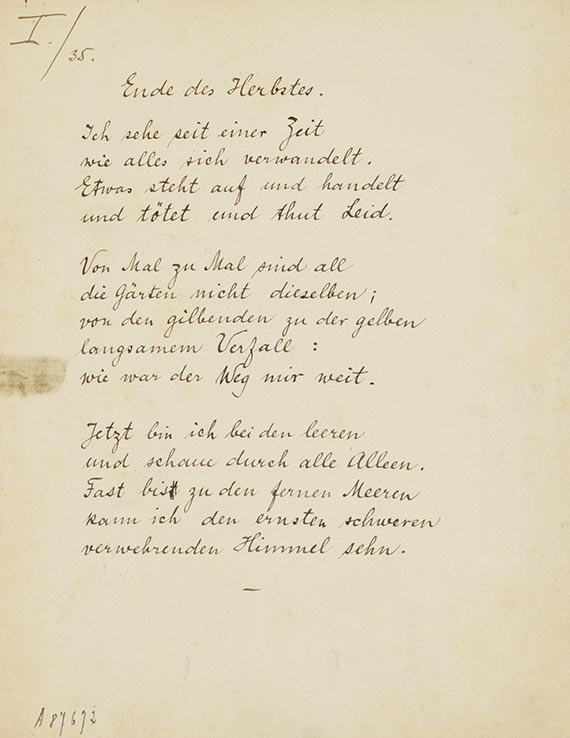 I./35.
Ende des Herbstes.
Ich sehe seit einer Zeit
wie alles sich verwandelt.
Etwas steht auf und handelt
und tötet und thut Leid.
Von Mal zu Mal sind all
die Gärten nicht dieselben;
von den gilbenden zu der gelben
langsamem Verfall :
wie war der Weg mir weit.
Jetzt bin ich bei den leeren
und schaue durch alle Alleen.
Fast bis zu den fernen Meeren
kann ich den ernsten schweren
verwehrenden Himmel sehn.
–
A 87672